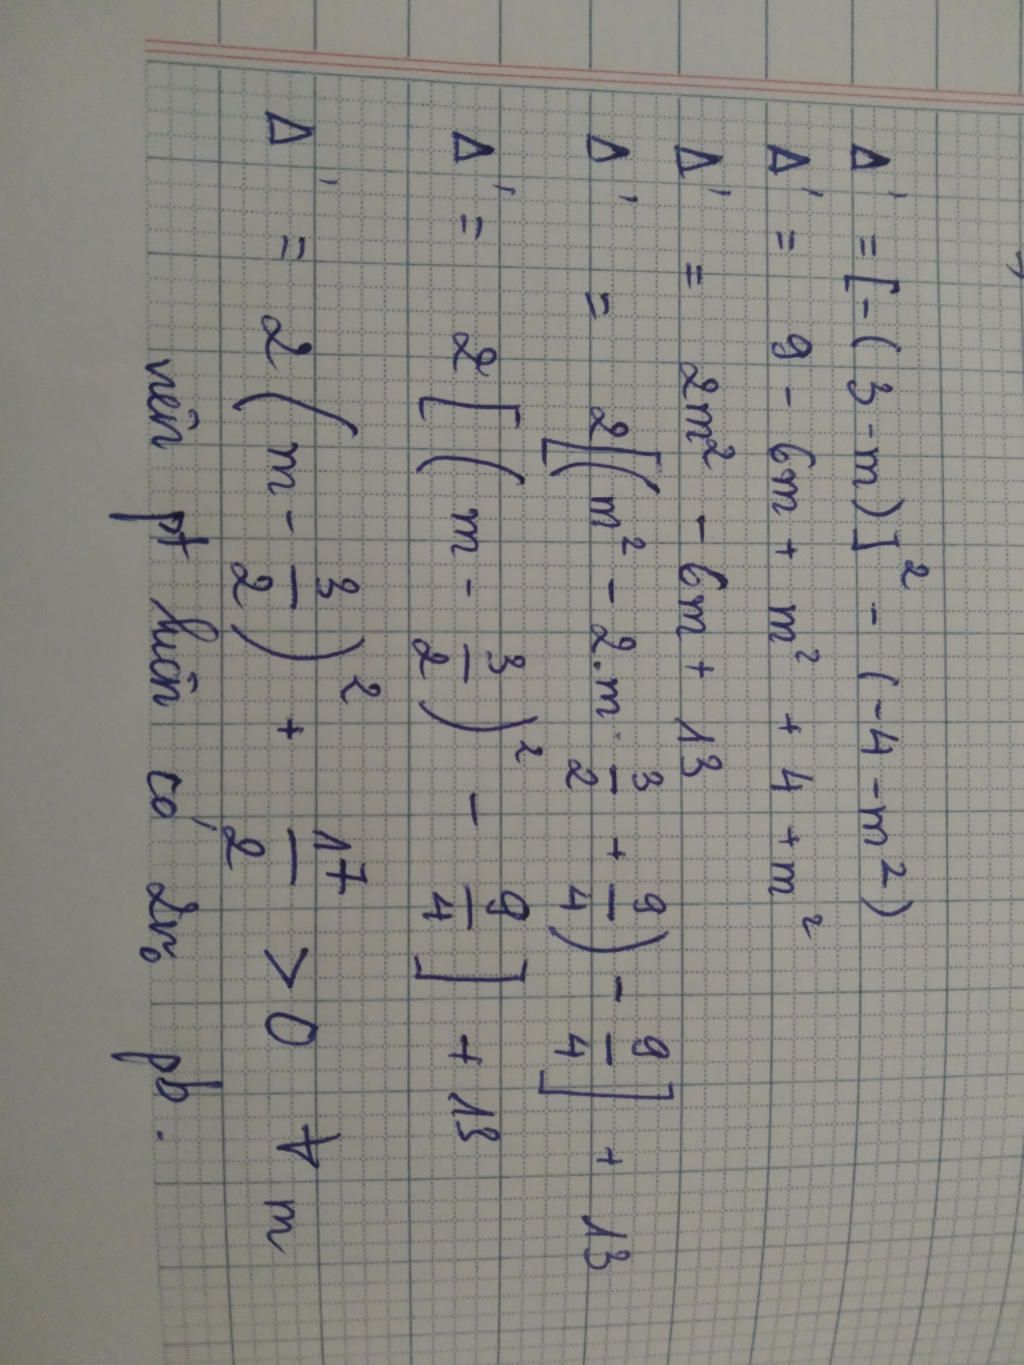 Δ' = [-(3-m)]² - (-4-m²)
Δ' = 9 - 6m + m² + 4 + m²
Δ' = 2m² - 6m + 13
Δ' = 2[(m² - 2.m.3/2 + 9/4) - 9/4] + 13
Δ' = 2[(m - 3/2)² - 9/4] + 13
Δ' = 2(m - 3/2)² + 17/2 > 0 ∀ m
nên pt luôn có 2no pb.